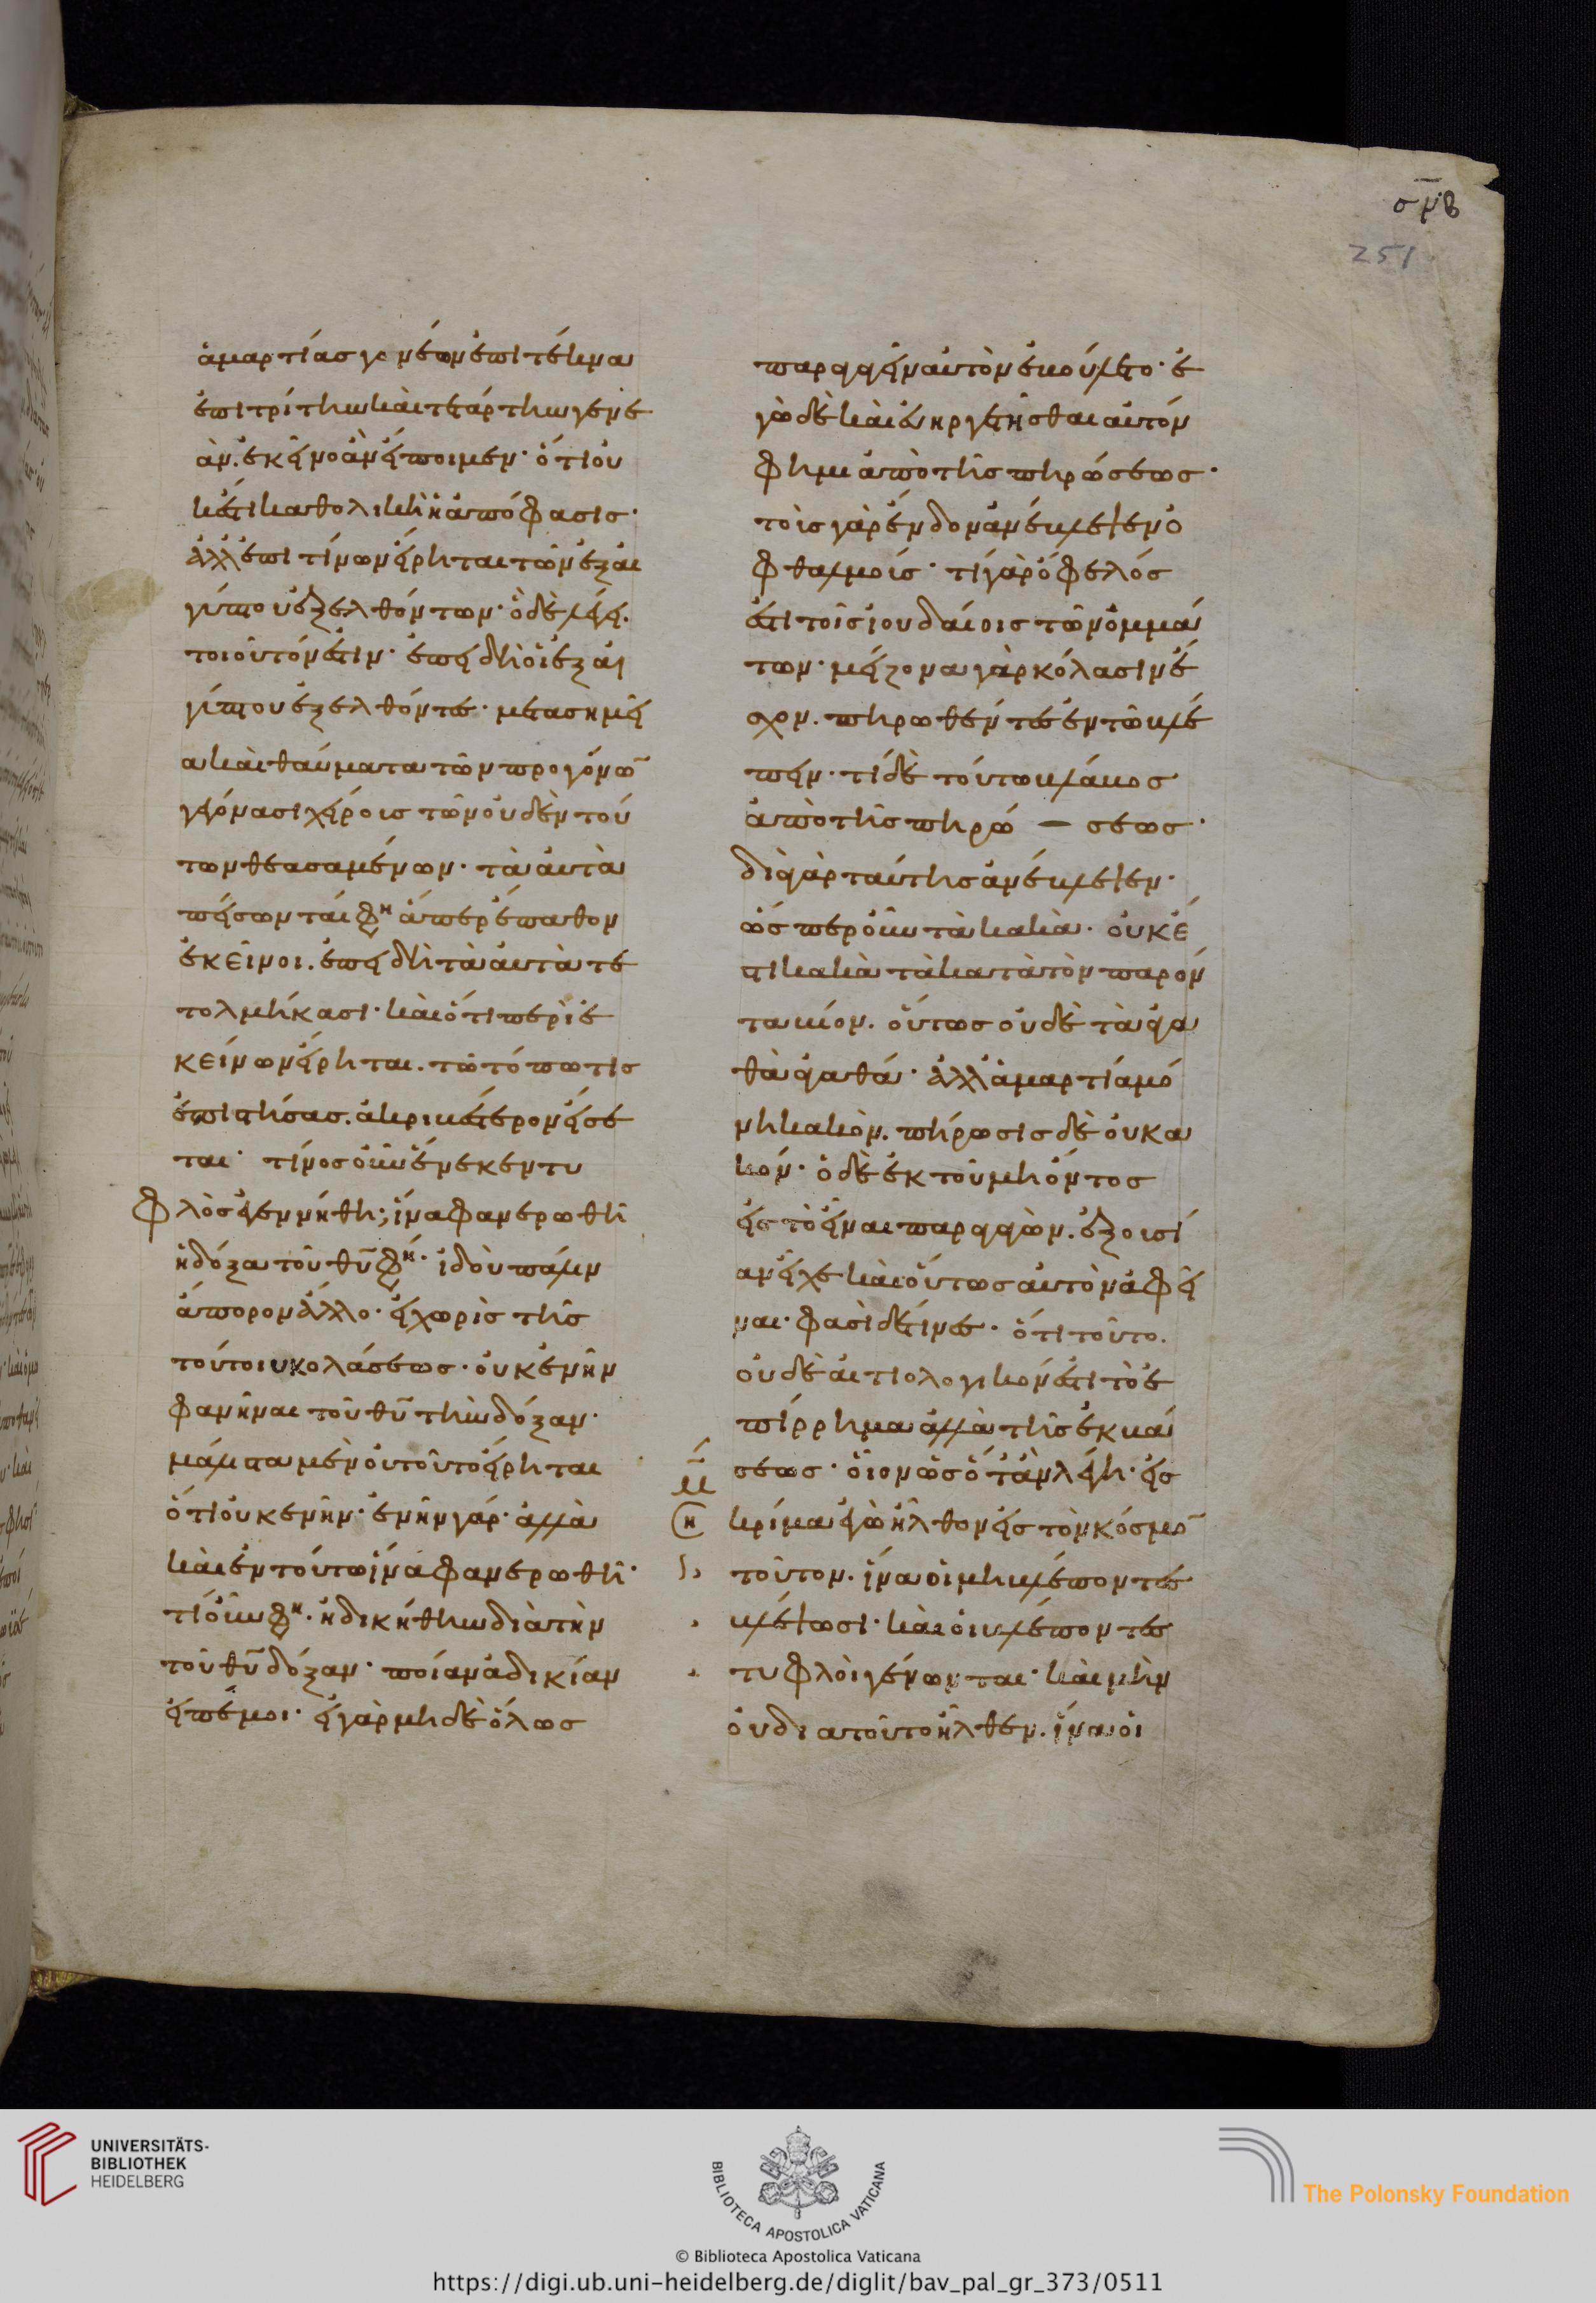 σμβ
251
ἁμαρτίας γονέων ἐπὶ τέκνα
ἐπὶ τρίτην καὶ τετάρτην γενε
ὰν. ἐκεῖνο ἂν εἴποιμεν· ὅτι οὐ
κ ἔστι καθολικὴ ἡ ἀπόφασις·
ἀλλ' ἐπί τινων εἴρηται τῶν ἐξ αἰ
γύπτου ἐξελθόντων· ὃ δὲ λέγει.
τοιοῦτόν ἐστιν· ἐπειδὴ οἱ ἐξ αἰ
γύπτου ἐξελθόντες· μετὰ σημεῖ
α καὶ θαύματα τῶν προγόνω̅
γεγόνασι χείροις τῶν οὐδὲν τού
των θεασαμένων· τὰ αὐτὰ
πείσονται φη ἅπερ ἔπαθον
ἐκεῖνοι. ἐπειδὴ τὰ αὐτὰ τε
τολμήκασι· καὶ ὅτι περὶ ἐ
κείνων εἴρηται. τῶ τόπω τις
ἐπιστήσας. ἀκριβέστερον εἴσε
ται· τίνος οὖν ἕνεκεν τυ
φλὸς ἐγεννήθη; ἵνα φανερωθῆ
ἡ δόξα τοῦ θυ̅ φη· ἰδοὺ πάλιν
ἄπορον ἄλλο· εἰ χωρὶς τῆς
τούτου κολάσεως· οὐκ ἐνῆν
φανῆναι τοῦ θυ̅ τὴν δόξαν·
μάλιστα μὲν οὐ τοῦτο εἴρηται
ὅτι οὐκ ἐνῆν· ἐνῆν γάρ· ἀλλὰ
καὶ ἐν τούτω ἵνα φανερωθῆ·
τί οὖν φη· ἠδικήθην διὰ τὴν
τοῦ θυ̅ δόξαν· ποίαν ἀδικίαν
εἰπέ μοι· εἰ γὰρ μηδὲ ὅλως
παραγαγεῖν αὐτὸν ἐβούλετο· ἐ
γὼ δὲ καὶ εὐηργετῆσθαι αὐτόν
φημι ἀπὸ τῆς πηρώσεως·
τοὶς γὰρ ἔνδον ἀνέβλεψεν ὀ
φθαλμοίς· τί γὰρ ὄφελός
ἐστι τοῖς ἰουδαίοις τῶν ὀμμά
των· μείζονα γὰρ κόλασιν ἔ
σχον. πηρωθέντες ἐν τῶ βλέ
πειν· τί δὲ τούτω βλάβος
ἀπὸ τῆς πηρώ — σεως·
διὰ γὰρ ταύτης ἀνέβλεψεν·
ὥσπερ οὖν τὰ κακὰ· οὐκ ἔ
στι κακὰ τὰ κατὰ τὸν παρόν
τα βίον. οὕτως οὐδὲ τὰ ἀγα
θὰ ἀγαθά· ἀλλ' ἁμαρτία μό
νη κακὸν. πήρωσις δὲ οὐ κα
κόν· ὁ δὲ ἐκ τοῦ μὴ ὄντος
εἰς τὸ εἶναι παραγαγὼν. ἐξουσί
αν εἶχε καὶ οὕτως αὐτὸν ἀφεῖ
ναι· φασὶ δέ τινες· ὅτι τοῦτο.
οὐδὲ αἰτιολογικόν ἐστι τὸ ἐ
πίρρημα ἀλλὰ τῆς ἐκβά
σεως· οἷον ὡς ὅταν λέγη· εἰς
κρίμα ἐγὼ ἦλθον εἰς τὸν κόσμο̅
τοῦτον. ἵνα οἱ μὴ βλέποντες
βλέψωσι· καὶ οἱ βλέποντες
τυφλοὶ γένωνται· καὶ μὴν
οὐ διὰ τοῦτο ἦλθεν. ἵνα οἱ
UNIVERSITÄTS-
BIBLIOTHEK
HEIDELBERG
BIBLIOTECA APOSTOLICA VATICANA
The Polonsky Foundation
© Biblioteca Apostolica Vaticana
https://digi.ub.uni-heidelberg.de/diglit/bav_pal_gr_373/0511